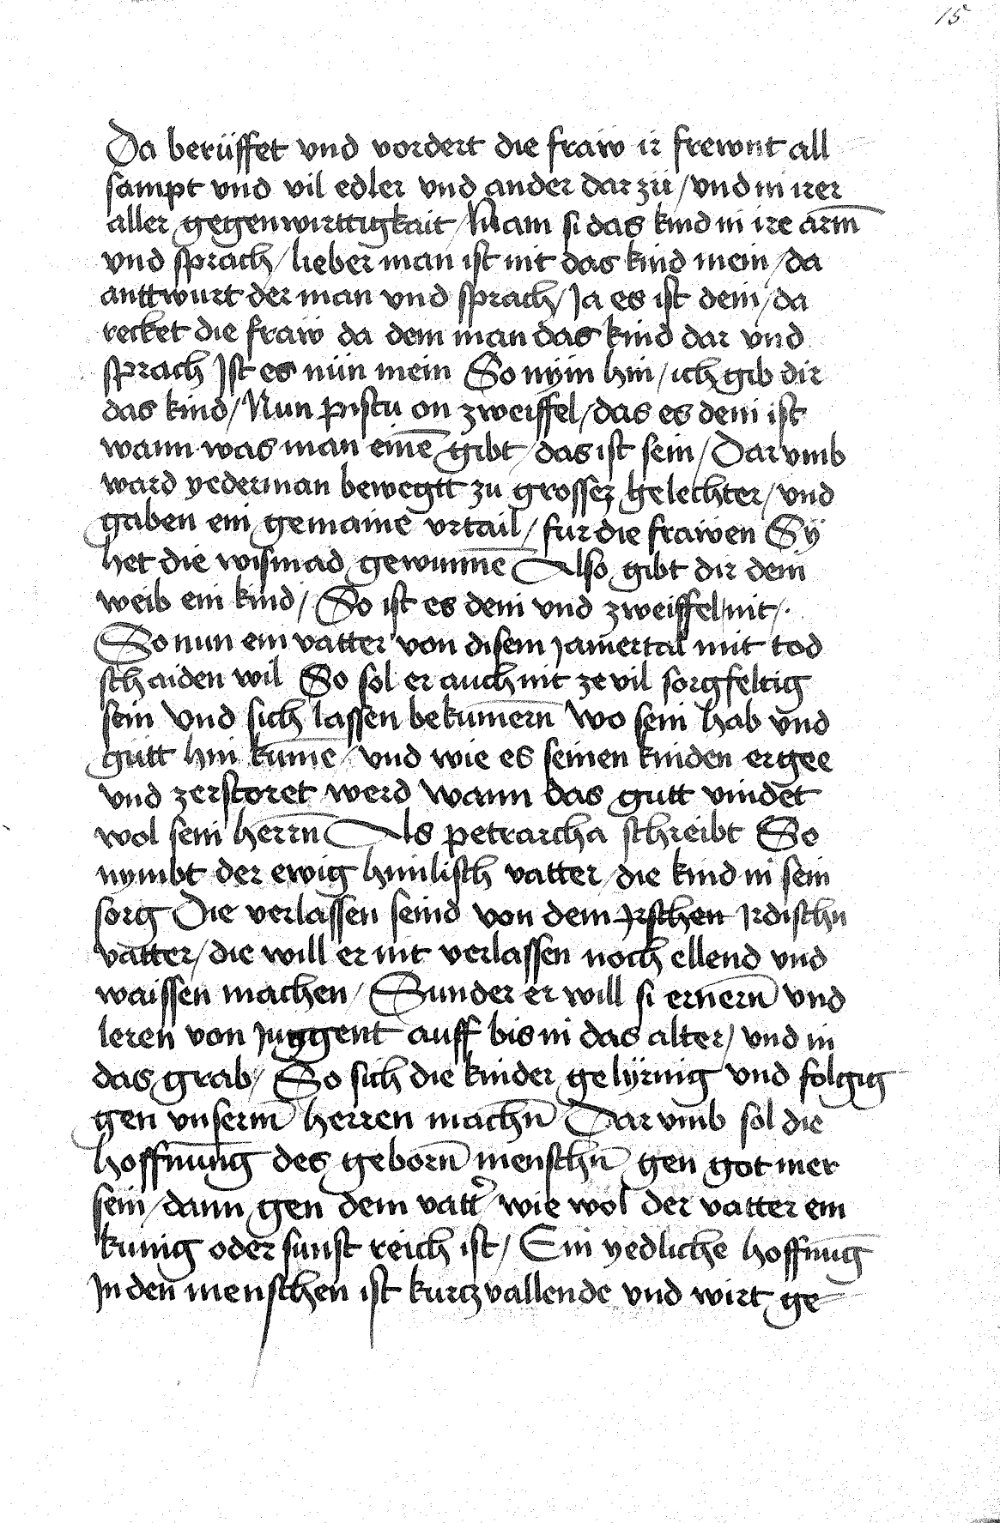 15
Da berüffet vnd vordert die fraw ir frewnt all
sampt vnd vil edler vnd ander dar zü / vnd in irer
aller gegenwirttigkait / Nam si das kind in ire arm̄
vnd sprach / lieber man ist nit das kind mein / da
anttwurt der man vnd sprach / Ja es ist dein / da
recket die fraẅ da dem man das kind dar vnd
sprach Ist es nün mein So nÿm hin / ich gib dir
das kind / Nun pristu on zweiffel / das es dein ist
wann was man eine͞ gibt / das ist sein / Dar vmb
ward yederman bewegtt zu grosseʒ gelechter / vnd
gaben ein gemaine vrtail / fur die fraẅen Sÿ
het die wismad gewunne͞ Also gibt dir dein
weib ein kind / So ist es dein vnd zweiffel nit /.
So nun ein vatter von disem jam̄ertal mit tod
schaiden wil So sol er auch nit ze vil sorgfeltig
sein vnd sich lassen bekum̄ern wo sein hab vnd
gütt hin kum̄e / vnd wie es seinen kinden ergee
vnd zerstoret werd wann das gutt vindet
wol sein herrn̄ Als petrarcha schreibt So
nymbt der ewig himlisch vatter die kind in sein
sorg Die verlassen seind von dem Jrschen Jrdischn
vatter / die will er nit verlassen noch ellend vnd
waissen machen / Sunder er will si ernern̄ vnd
leren von Juggent auff bis in das alter / vnd in
das grab / So sich die kinder gelÿrnig vnd folgig
gen vnserm̄ herren machn̄ Dar vmb sol die
hoffnung des geborn̄ menschn̄ gen got mer
sein / dann gen dem vatt᷑ wie wol der vatter ein
kunig oder sunst reich ist / Ein yedliche hoffnu͞g
In den menschen ist kurczvallende vnd wirt ge